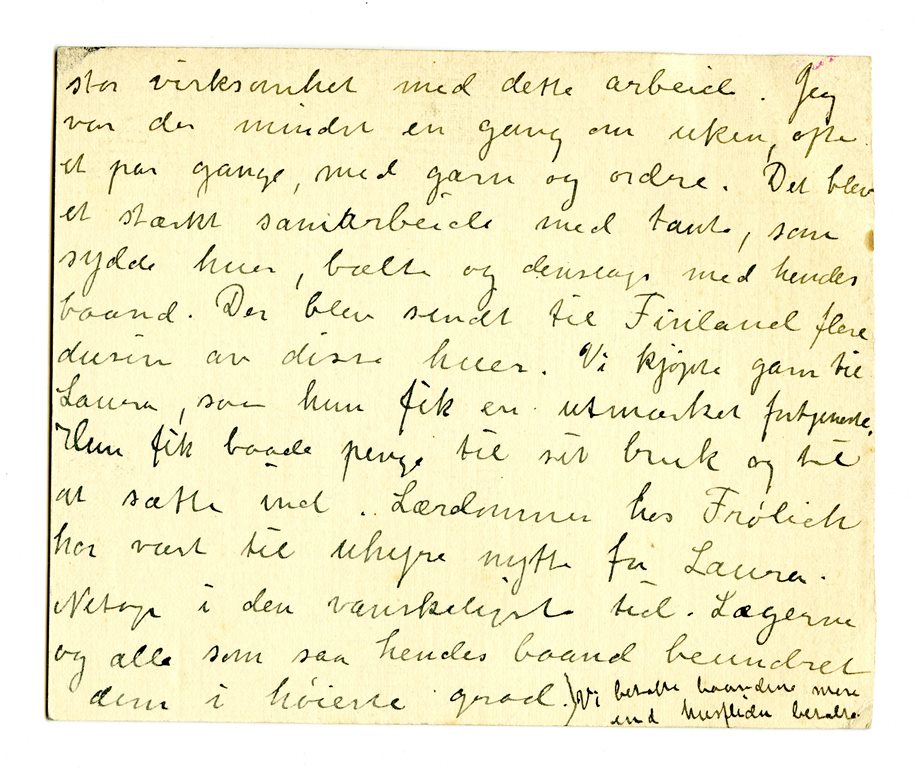 stor virksomhet med dette arbeide. Jeg
var der mindst en gang om uken, ofte
et par gange, med garn og ordre. Det blev
et stærkt samarbeide med tante, som
sydde huer, bælte og med hendes
baand. Der blev sendt til Finland flere
dusin av disse huer. Vi kjøpte garn til
Laura, saa hun fik en utmærket fortjeneste.
Hun fik baade penge til sit bruk og til
at sætte ind. Lærdommen hos Frølich
har vært til uhyre nytte for Laura.
Netop i den vanskeligste tid. Lægerne
og alle som saa hendes baand beundret
dem i høieste grad.) Vi betalte baandene mere
end husfliden betalte.